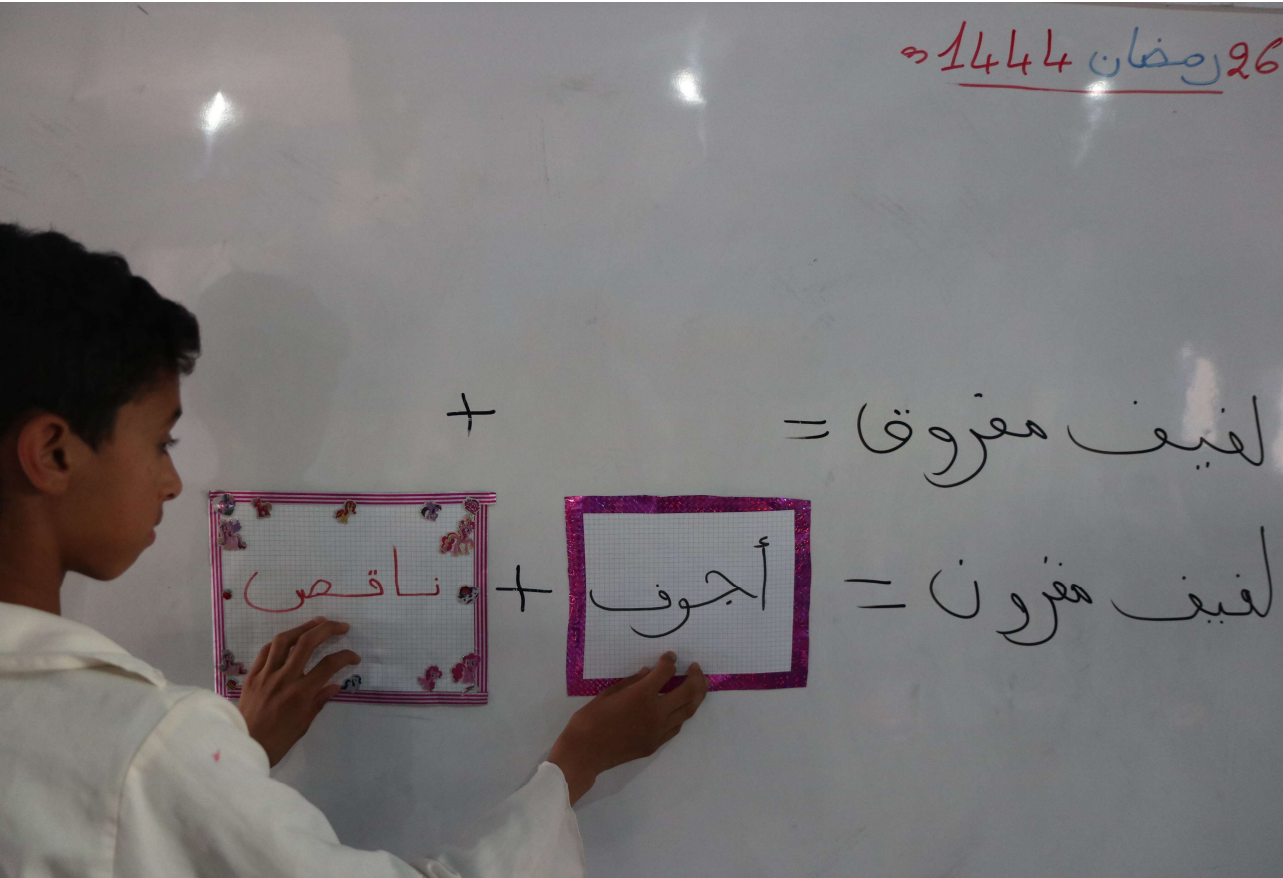 26 رمضان 1444 ه
لفيف مفروق = +
لفيف مقرون = أجوف + ناقص